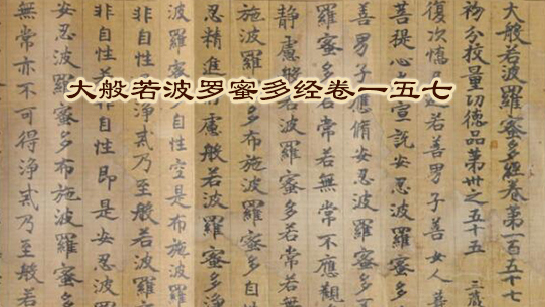 大般若波罗蜜多经卷一五七
大般若波羅蜜多經卷第一百五十七
初分校量功德品第卅之五十五
復次憍迦若善男子善女人
菩提心宣説安忍波羅蜜多
善男子應脩安忍波羅蜜多不
羅蜜多若常若無常不應觀
靜慮般若波羅蜜多若常若無
施波羅蜜多布施波羅蜜多
忍精進慮般若波羅蜜多
波羅蜜非自性空是布施波羅
非自性淨貳乃至般若波羅蜜
非自性若非自性即是安忍波
安忍波羅蜜多布施波羅蜜多
無常亦不可得淨貳乃至般若